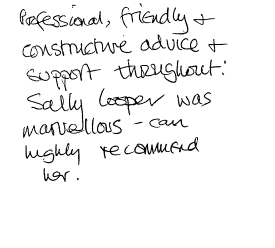 Professional, friendly +
constructive advice +
support throughout:
Sally Cooper was
marvellous - can
highly recommend
her.